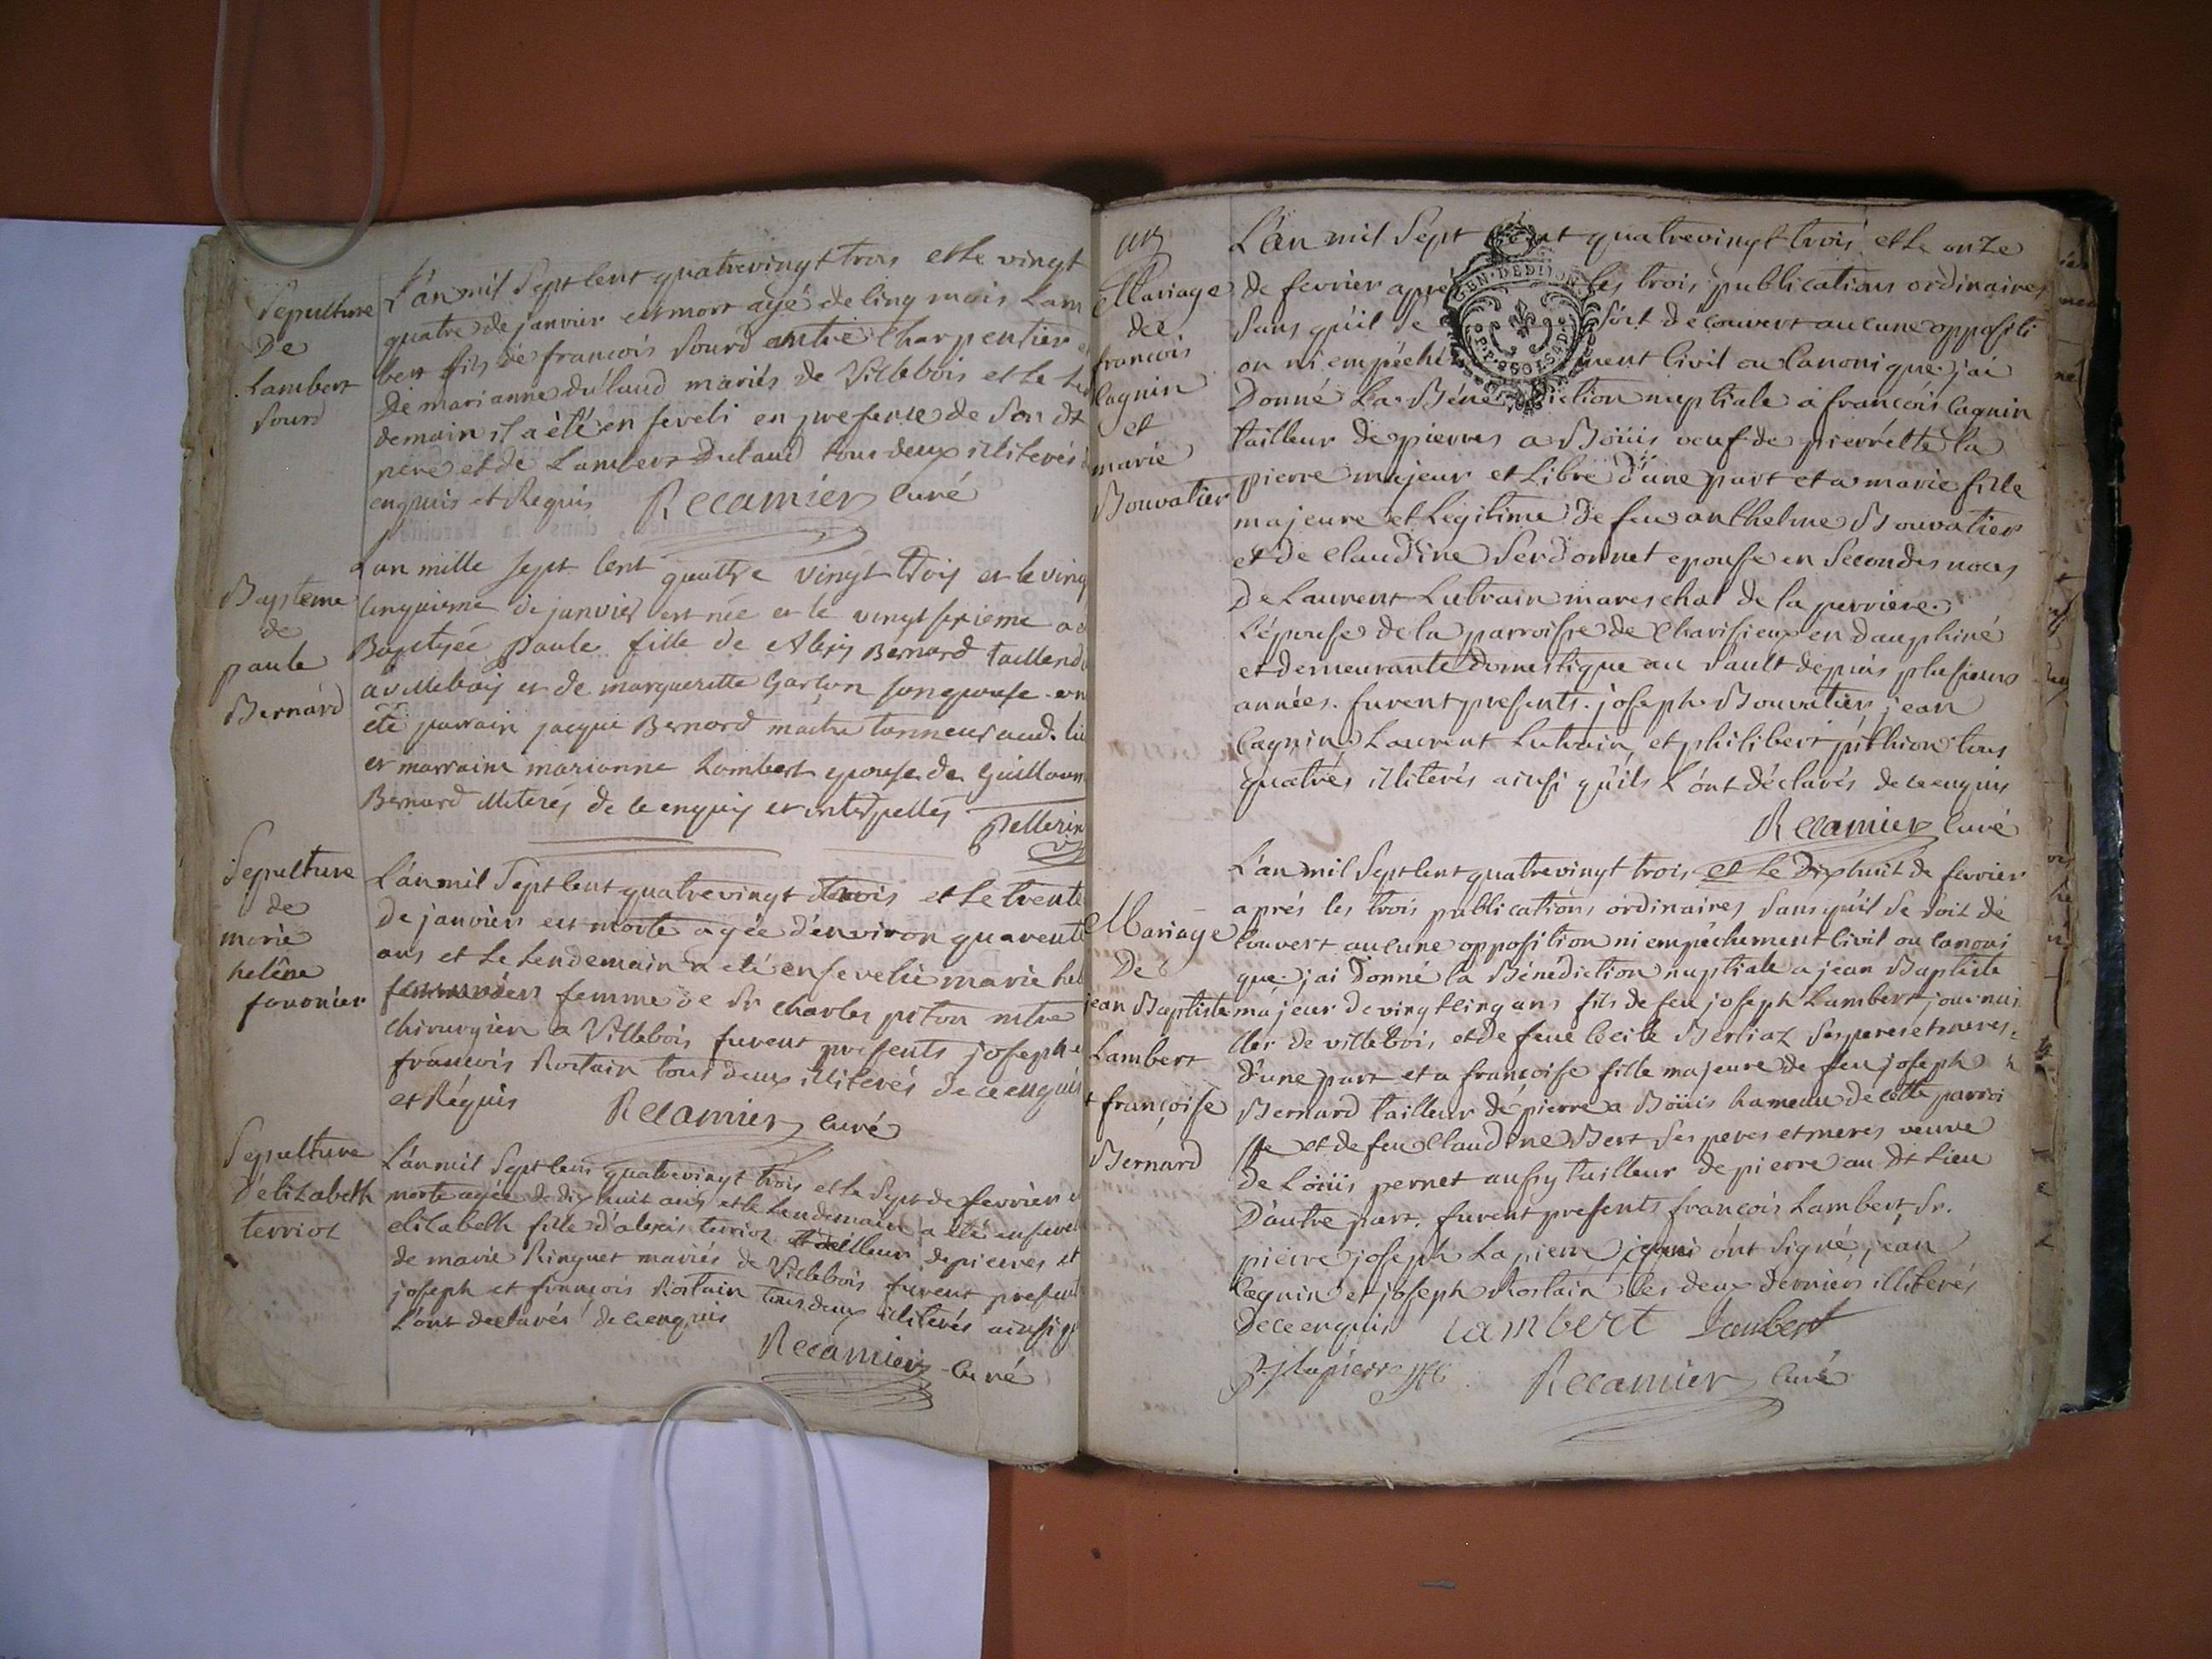 Sepulture
De
Lambert
Sourd
L'an mil Sept Cent quatrevingt trois et le vingt
quatre de janvier est mort agé de cinq mois Lam
bert fils de francois Sourd Charpentier
De marianne Dulaud mariés de Villebois et le Len
demain il a été enseveli en presence de Son dt
pere et de Lambert Dulaud tous deux illiterés
enquis et Requis Recamier Curé
Bapteme
de
paule
Bernard
L'an mille sept Cent quattre vingt trois et le ving
Cinquieme de janvier est née et le vingt sixieme a
Baptysée Paule fille de Alexis Bernard taillend
a villebois et de marguerette Garçon son epouse on
eté parrain jacque Bernard maitre tanneur aud. li
et marraine marianne Lambert epouse de Guillaum
Bernard illiterés de ce enquis et interpellés
Pellerin
Sepulture
de
marie
helêne
favonier
L'an mil Sept Cent quatrevingt trois et le trente
de janvier est morte agée d'environ quarente
ans et le Lendemain a été ensevelie marie hel
femme de Sr charles piton mtre
chirurgien a Villebois furent presents joseph et
francois Rostain tous deux illiterés de ce enquis
et Réquis Recamier Curé
Sepulture
D'elizabeth
terriot
L'an mil Sept Cent quatrevingt trois et le Sept de fevrier e
morte agée de dix huit ans et le Lendemain a été enseve
elizabeth fille d'alexis terriot tailleur de pierres et
de marie Ringuet mariés de Villebois furent present
joseph et francois Rostain tous deux illiterés ainsi q
L'ont declarés de ce enquis
Recamier Curé
Mariage
de
francois
Cagnin
et
marie
Bouvatier
L'an mil Sept Cent quatrevingt trois et le onze
de fevrier aprés les trois publications ordinaires
Sans qu'il se soit decouvert aucune oppositi
on ni empêchement Civil ou Canonique j'ai
Donné La Bénédiction nuptiale a francois Cagnin
tailleur de pierres a Boüis veuf de pierrette la
pierre majeur et Libre d'une part et a marie fille
majeure et Legitime de feu anthelme Bouvatier
et de Claudine Serdonnet epouse en Secondes noces
De Laurent Lutrain mareschal de la perriere.
L'épouse de la parroisse de Charisieux en dauphiné
et demeurante Domestique au Sault depuis plusieurs
années. furent presents. joseph Bouvatier, jean
Cagnin, Laurent Lutrain, et philibert pithion tous
quatres illiterés ainsi qu'ils L'ont déclarés de ce enquis
Recamier Curé
Mariage
De
jean Baptiste
Lambert
et françoise
Bernard
L'an mil Sept Cent quatrevingt trois et le Dix huit de fevrier
aprés les trois publications ordinaires, Sans qu'il se soit dé
couvert aucune opposition ni empêchement Civil ou Canoni
que j'ai Donné la Bénédiction nuptiale a jean Baptiste
majeur de vingt cinq ans fils de feu joseph Lambert journa
lier de villebois, et de feue Cecile Berliaz Ses peres et meres.
D'une part et a françoise fille majeure de feu joseph
Bernard tailleur de pierre a Boüis hameau de cette parroi
sse et de feu Claudine Bert Ses peres et meres veuve
De Loüis pernet aussy tailleur de pierre au dt Lieu
D'autre part. furent presents francois Lambert, Sr.
pierre joseph Lapierre qui ont signé, jean
Cagnin et joseph Rostain les deux derniers illiterés
De ce enquis Lambert Lambert
P. J Lapierre Recamier Curé
GEN. DE DIJON